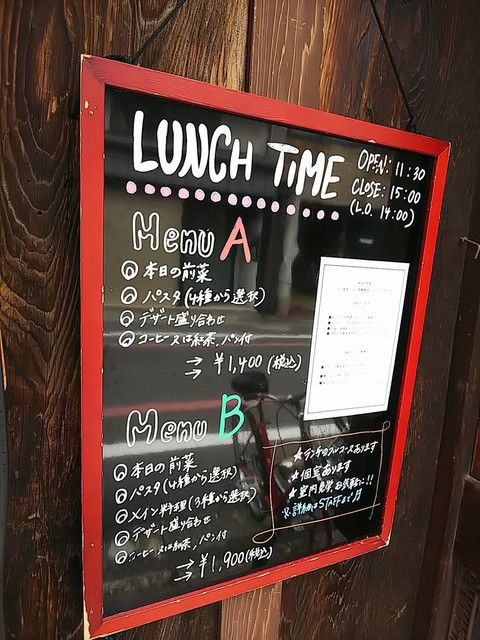 LUNCH TIME
OPEN: 11:30
CLOSE: 15:00
(L.O. 14:00)
Menu A
本日の前菜
パスタ(4種から選択)
デザート盛り合わせ
コーヒー又は紅茶、パン付
→ ¥1,400 (税込)
Menu B
本日の前菜
パスタ(4種から選択)
メイン料理(3種から選択)
デザート盛り合わせ
コーヒー又は紅茶、パン付
→ ¥1,900(税込)
★ランチのフルコースあります
★個室あります
★室内見学お気軽に!!
※詳細はSTAFFまで